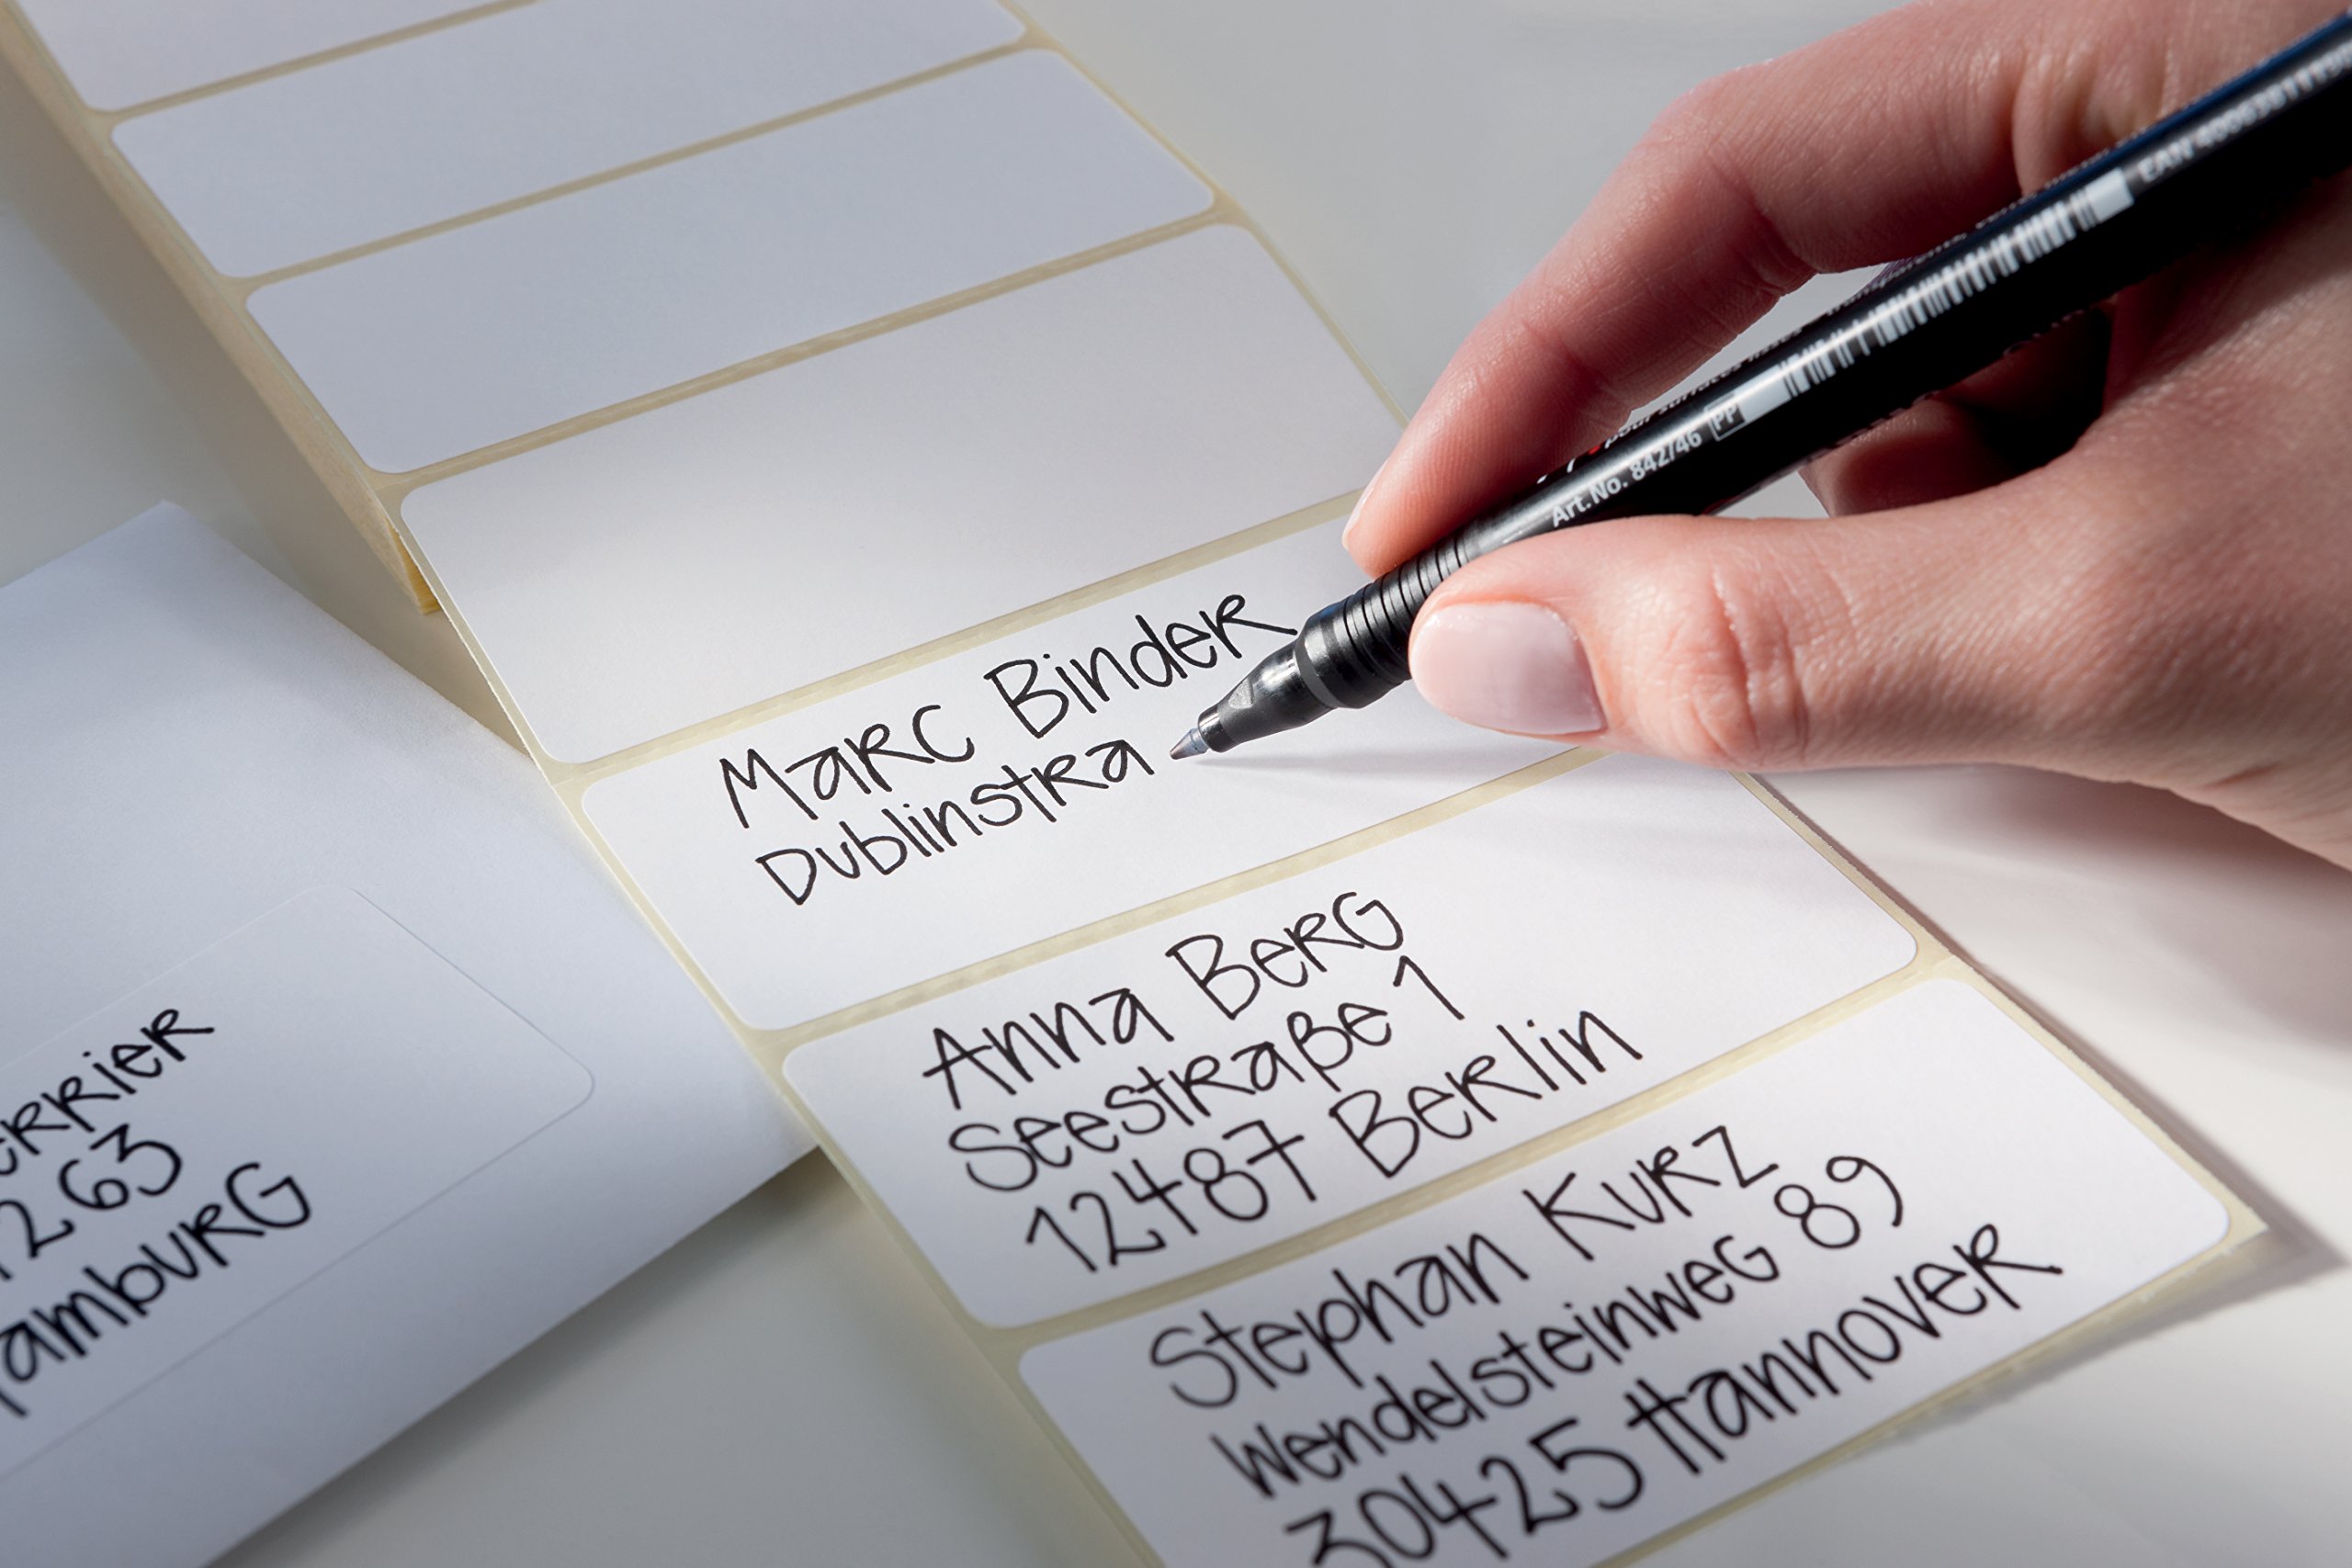 Marc Binder
Dublinstra
Anna Berg
Seestraße 1
12487 Berlin
Stephan Kurz
Wendelsteinweg 89
30425 Hannover
errier
263
amburg
Art.No. 842/46 PP
EAN
pour surfaces lisses